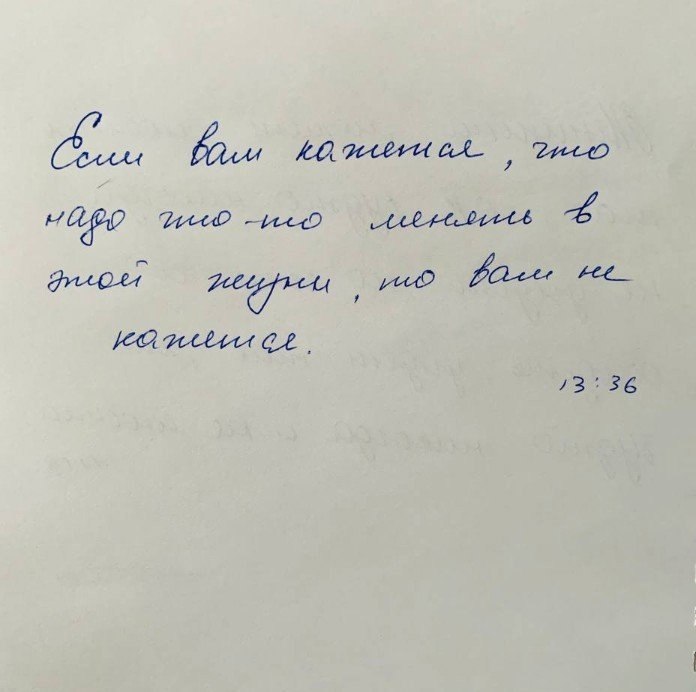 Если вам кажется, что
надо что-то менять в
этой жизни, то вам не
кажется.
13:36